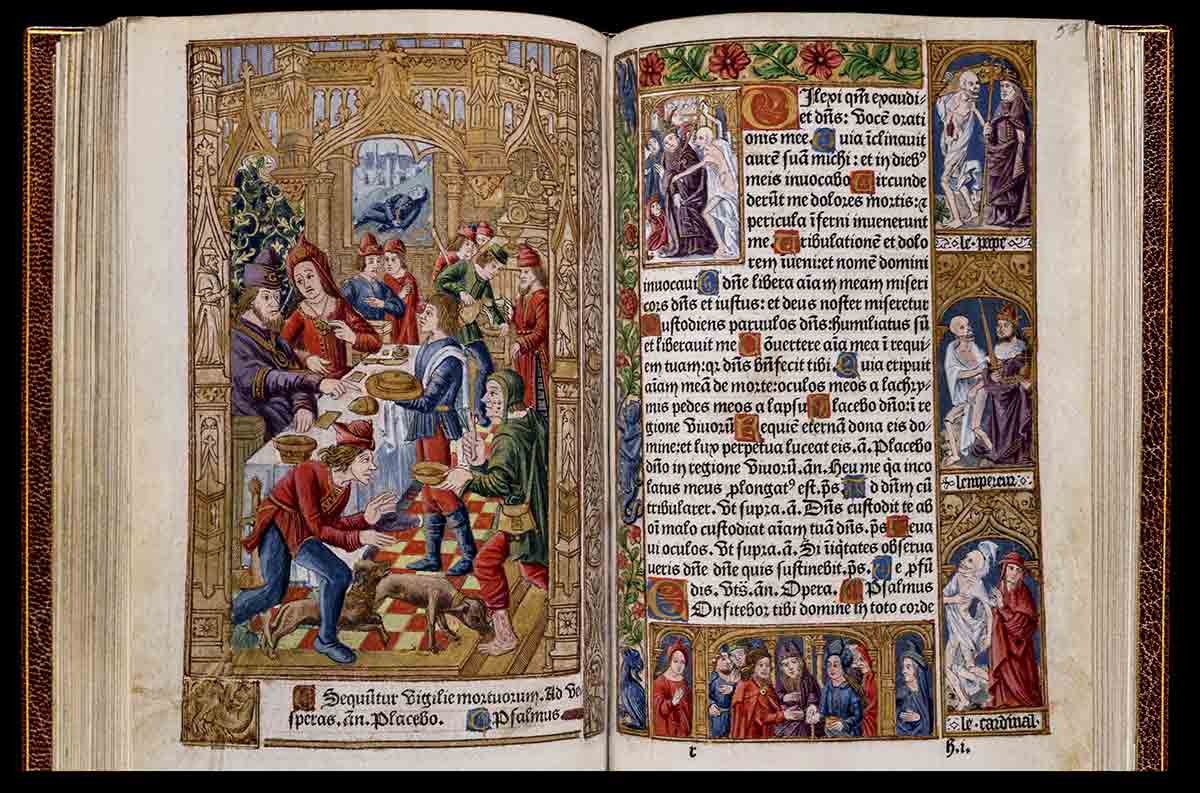 Sequūtur Vigilie mortuorum. Ad Ve
speras. an. Placebo. Psalmus
57
Dilexi qm̄ exaudi-
et dn̄s: Vocē orati
onis mee. Quia īclinauit
aurē suā michi: et in dieb⁹
meis inuocabo Circunde
derūt me dolores mortis: ⁊
pericula īferni inuenerunt
me. Tribulationē et dolo
rem iueni: et nomē domini
inuocaui O dn̄e libera aīam meam miseri
cors dn̄s et iustus: et deus noster miseretur
Custodiens paruulos dn̄s: humiliatus sū
et liberauit me Cōuertere aīa mea ī requi
em tuam: qr dn̄s bn̄fecit tibi. Quia eripuit
aīam meā de morte: oculos meos a lachry-
mis pedes meos a lapsu Placebo dn̄o ī re
gione Viuorū Requiē eternā dona eis do-
mine: et lux perpetua luceat eis. ā. Placebo
dn̄o in regione Viuorū. an. Heu me qa inco
latus meus ꝓlongat⁹ est. ps̄ Ad dn̄m cū
tribularer. Vt supra. ā. Dn̄s custodit te ab
oī malo custodiat aīam tuā dn̄s. ps̄ Leua
ui oculos. Vt supra. ā. Si īiq̄tates obserua
ueris dn̄e dn̄e quis sustinebit. ps̄. De ꝓfū
dis. Vts̄. an. Opera. Psalmus
Confitebor tibi domine in toto corde
le pape
lempereur
le cardinal
r
h.i.